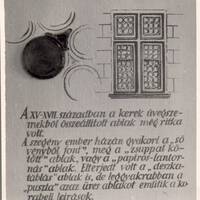 A XV-XVII. században a kerek üvegszem-
ekből összeállított ablak még ritka
volt.
A szegény ember házán gyakori a „sö
vényből font", meg a „zsuppal kö-
tött" ablak, vagy a „papirós-lantor-
nás" ablak. Elterjedt volt a „deszka-
táblás" ablak is, de leggyakrabban a
„puszta" azaz üres ablakot említik a ko
rabeli leírások.